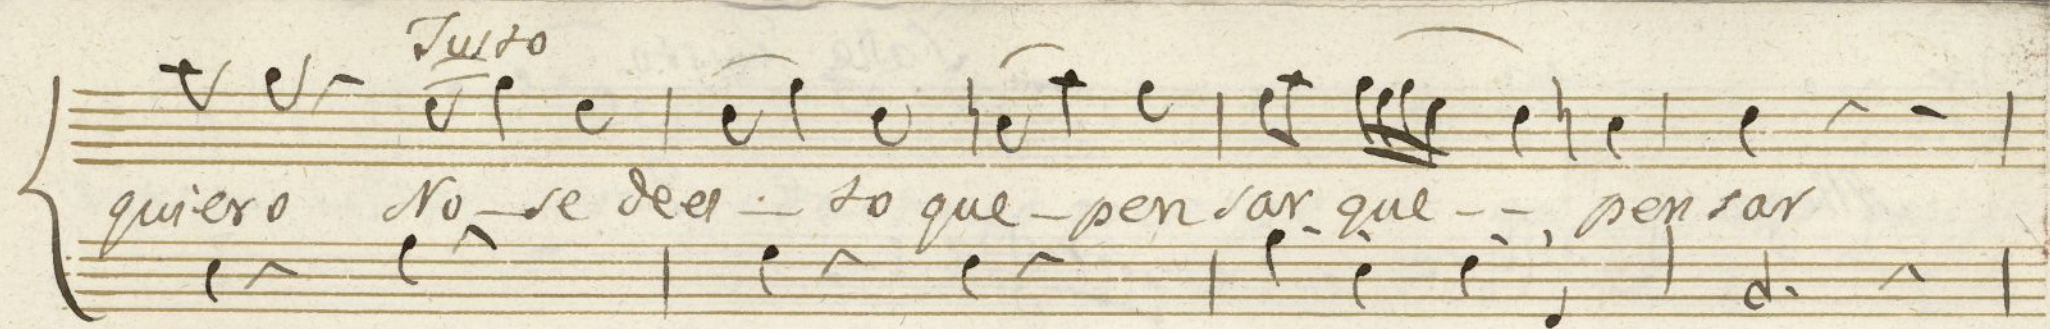 Justo
quiero No-se dees-to que-pensar que-- pensar